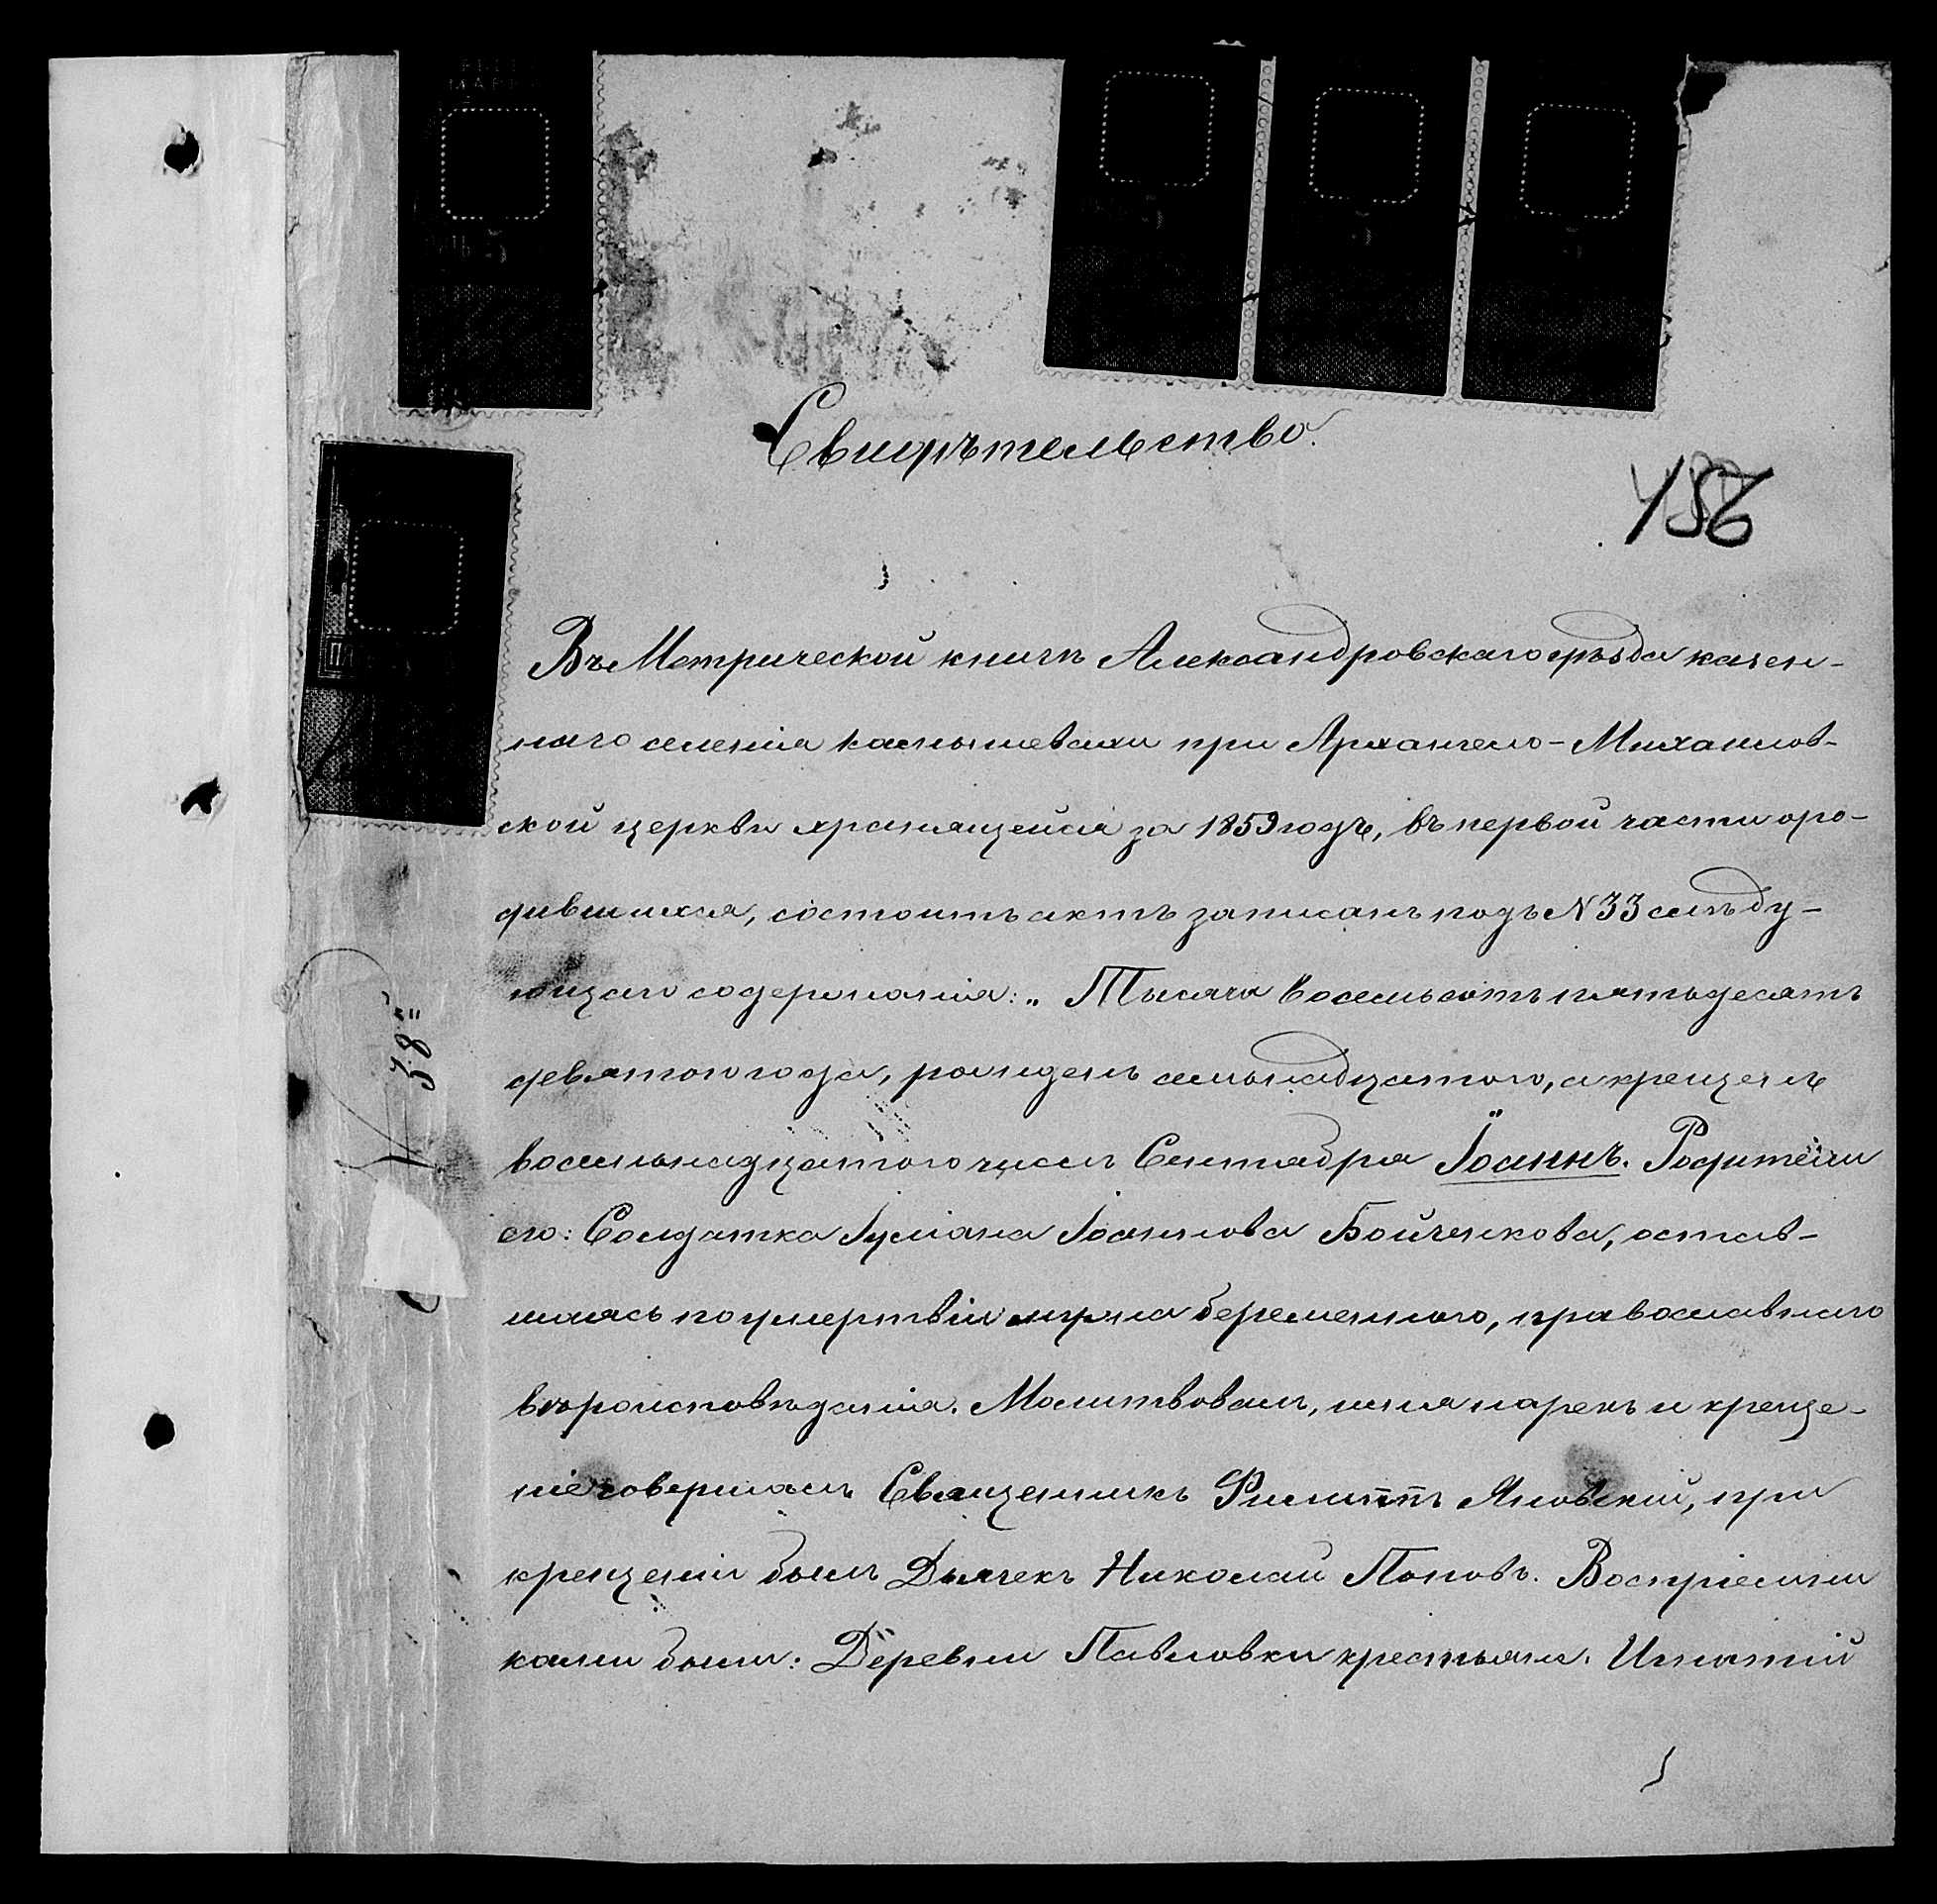 Свидѣтельство.
156
Въ Метрической книгѣ Александровскаго уѣзда казен-
наго селенія Камышевахи при Архангело-Михаилов-
ской церкви хранящейся за 1859 годъ, въ первой части о ро-
дившихся, состоитъ актъ записанъ подъ N 33 слѣду-
ющаго содержанія: „ Тысяча восемьсотъ пятьдесятъ
девятого года, рожденъ семьнадцатого, а крещенъ
восемьнадцатого числъ Сентября Іоаннъ. Родители
его: Солдатка Іуліана Іоаннова Бойченкова, остав-
шаясь по умертвіи мужа беременною, православнаго
вѣроисповѣданія. Молитвовалъ, имя нарекъ и креще-
ніе совершалъ Священникъ Филиппъ Яновскій, при
крещеніи былъ Дьячекъ Николай Поповъ. Воспріемни
ками были: Деревни Павловки крестьян. Игнатій
38